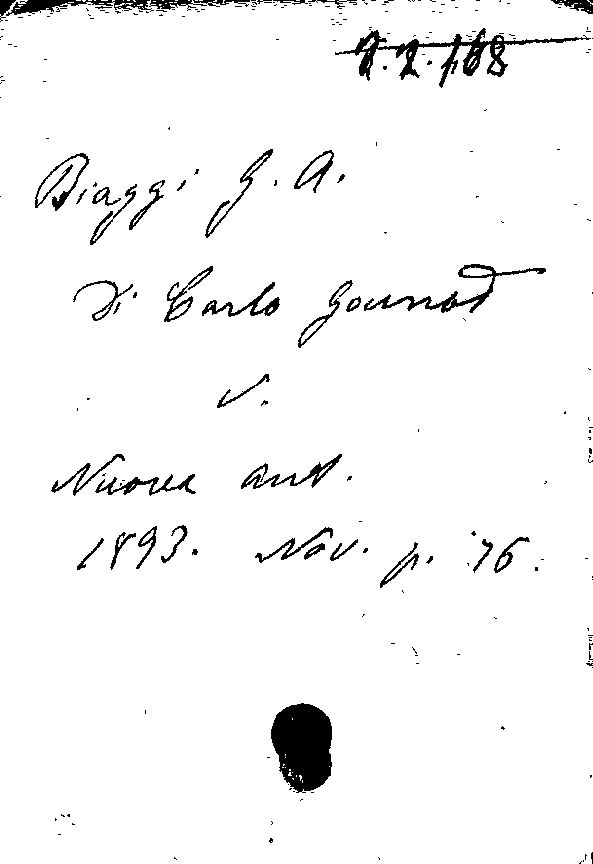 Biaggi G. A.
Di Carlo Gounod
v.
Nuova ant.
1893. Nov. p. 76.